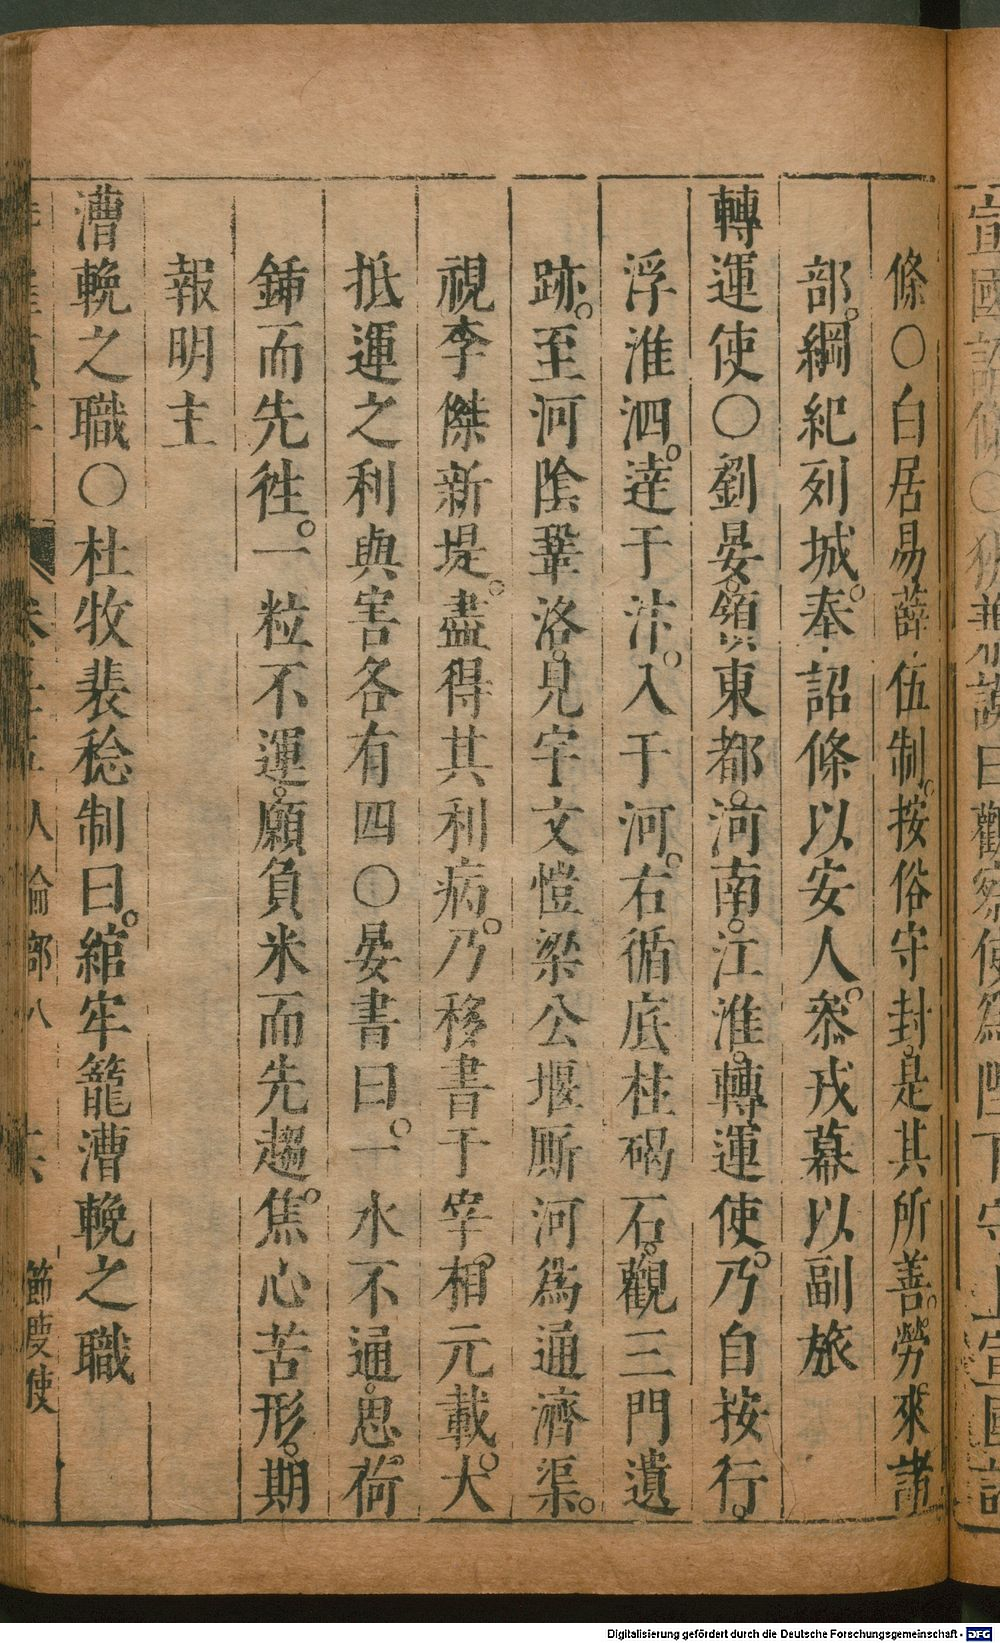 條○白居易薛伍制按俗守封是其所善勞來諸
部綱紀列城奉詔條以安人叅戎幕以副旅
轉運使○劉晏領東都河南江淮轉運使乃自按行
浮淮泗達于汴入于河右循底柱碣石觀三門遺
跡至河陰鞏洛見宇文愷梁公堰厮河爲通濟渠
視李傑新堤盡得其利病乃移書于宰相元載大
抵運之利與害各有四○晏書曰一水不通思荷
鍤而先徃一粒不運願負米而先趨焦心苦形期
報明主
漕輓之職○杜牧裴稔制曰綰牢籠漕輓之職
人倫部八 節度使
Digitalisierung gefördert durch die Deutsche Forschungsgemeinschaft - DFG